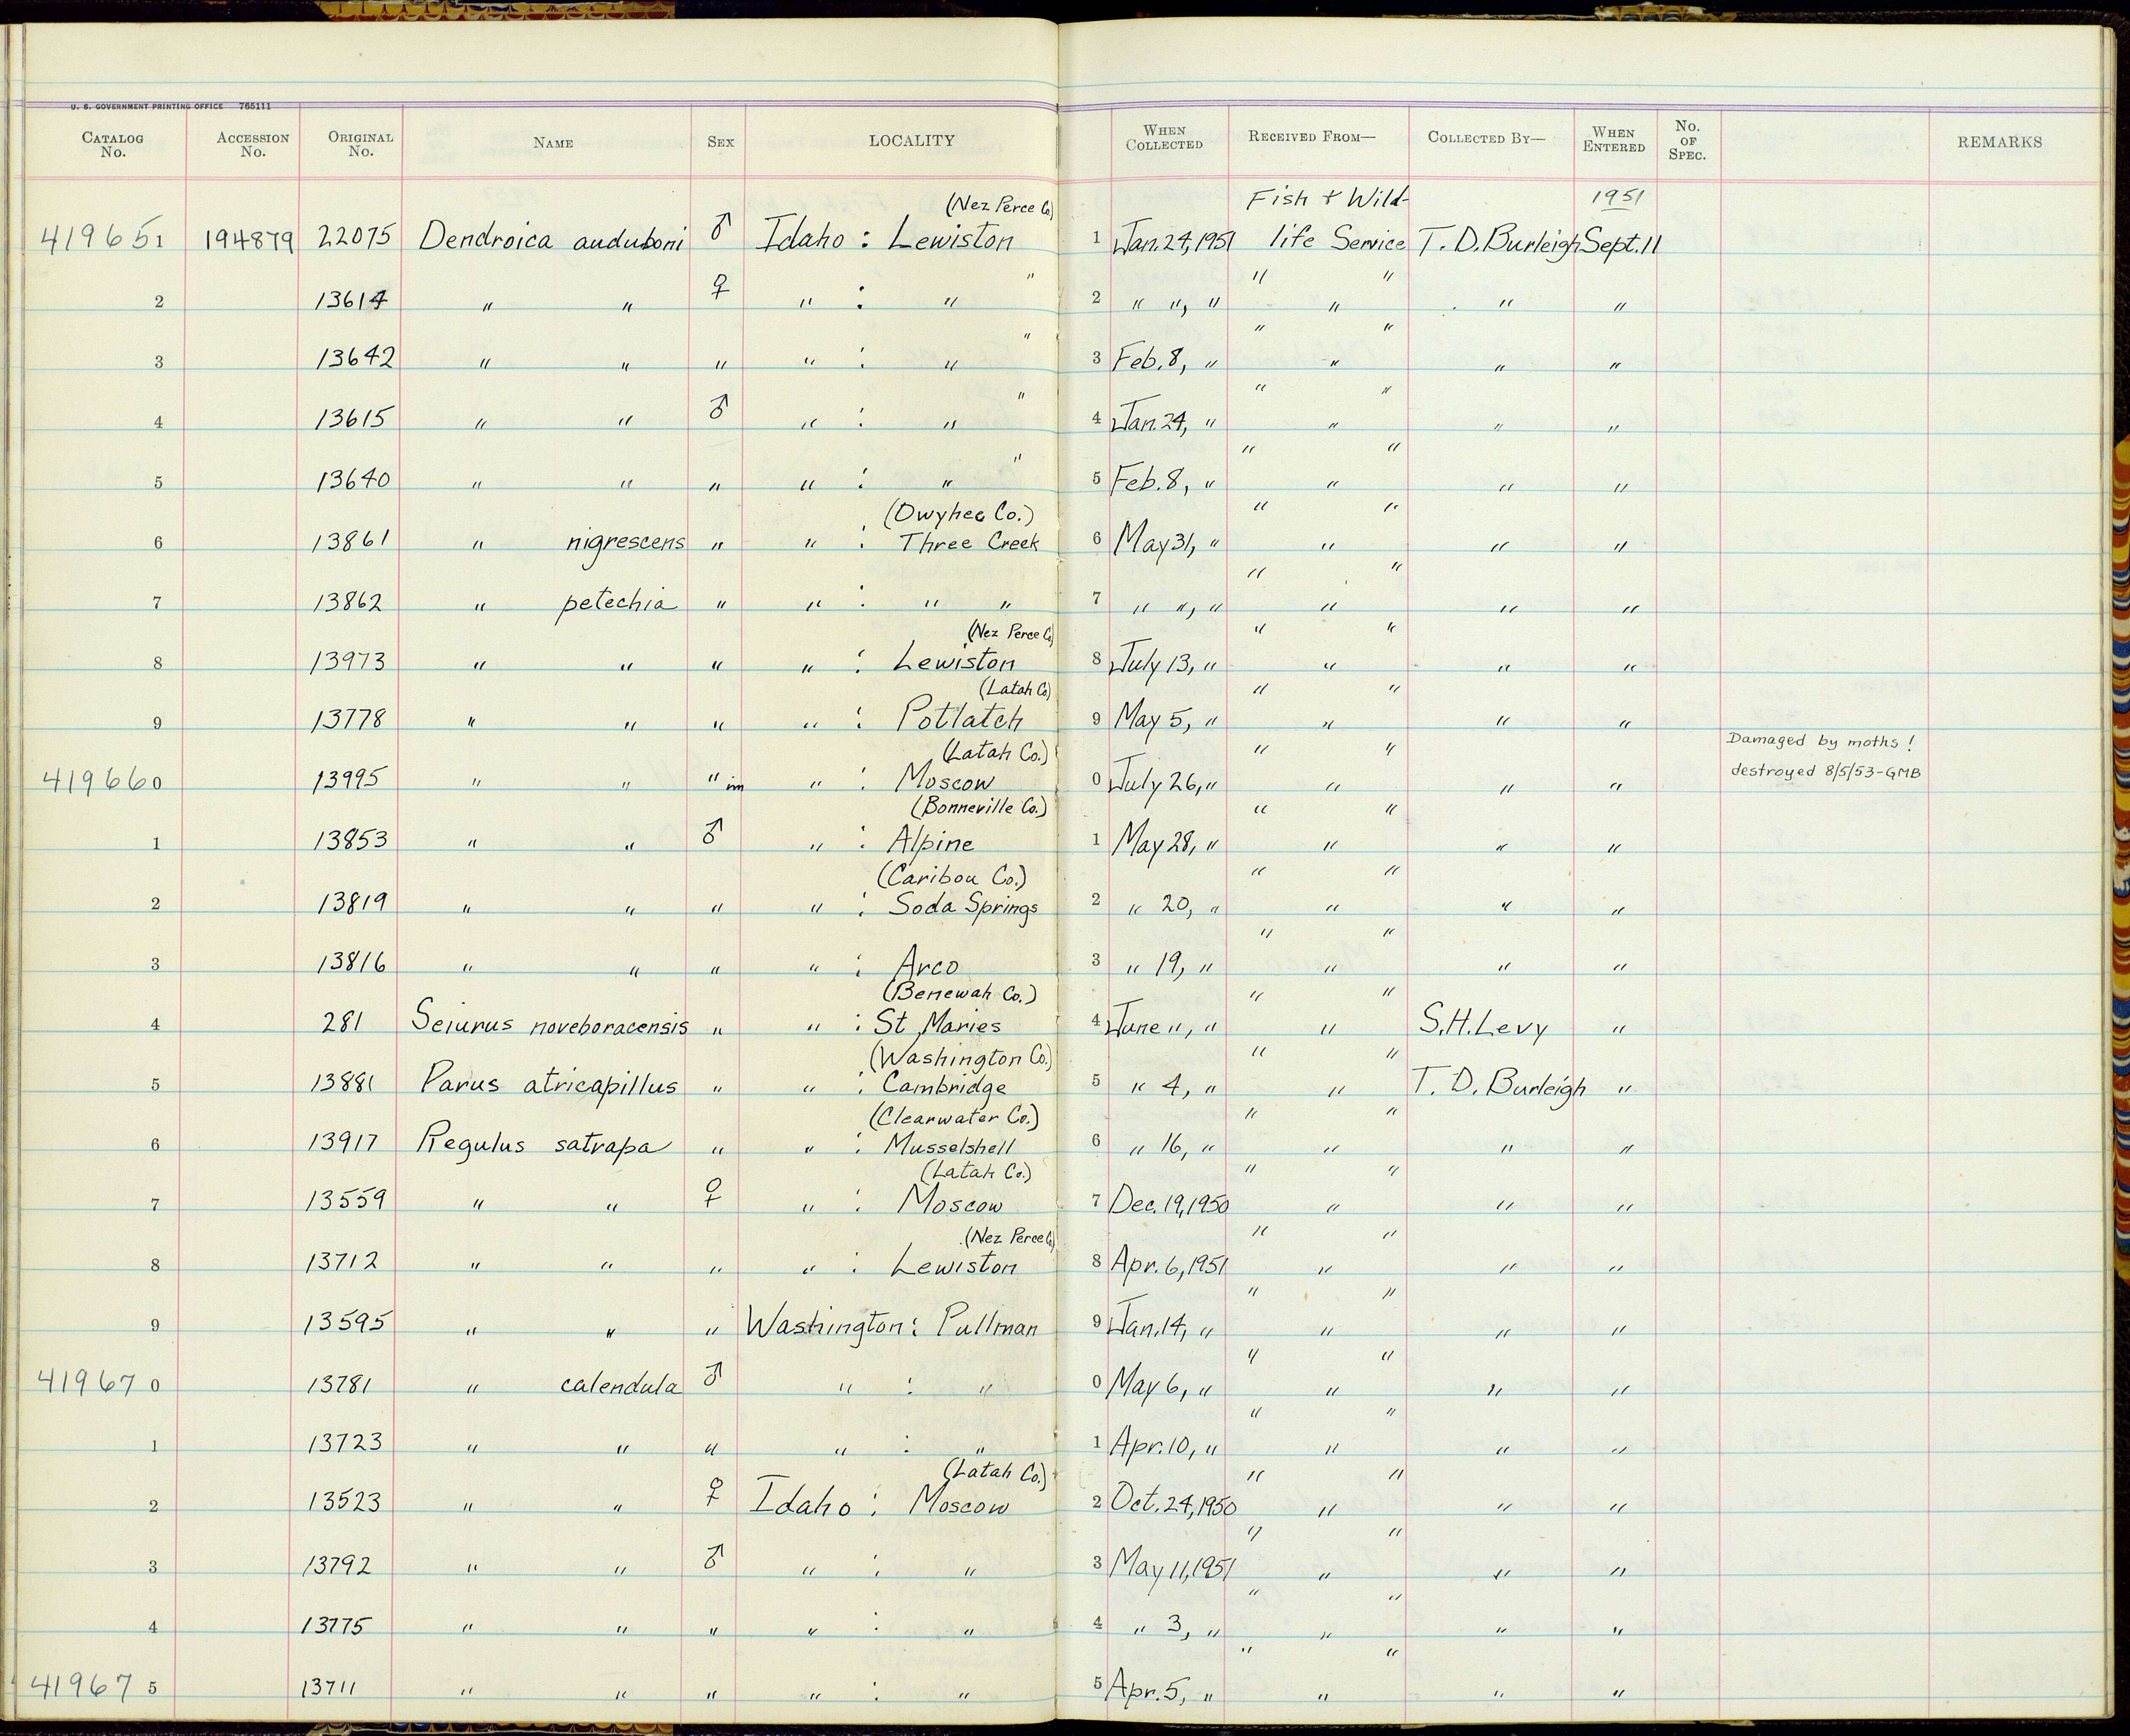 U. S. GOVERNMENT PRINTING OFFICE 765111
CATALOG No. ACCESSION No. ORIGINAL No. NAME SEX LOCALITY WHEN COLLECTED RECEIVED FROM— COLLECTED BY— WHEN ENTERED No. OF SPEC. REMARKS
(Nez Perce Co) Fish & Wild- 1951
419651 194879 22075 Dendroica auduboni ♂ Idaho : Lewiston 1 Jan. 24, 1951 life Service T. D. Burleigh Sept. 11
" " "
2 13614 " " ♀ " : " 2 " ", " " " "
" " "
3 13642 " " " " : " 3 Feb. 8, " " " "
" " "
4 13615 " " ♂ " : " 4 Jan. 24, " " " "
" " "
5 13640 " " " " : " 5 Feb. 8, " " " "
(Owyhee Co.) " "
6 13861 " nigrescens " " : Three Creek 6 May 31, " " " "
" "
7 13862 " petechia " " : " " 7 " ", " " " "
(Nez Perce Co) " "
8 13973 " " " " : Lewiston 8 July 13, " " " "
(Latah Co) " "
9 13778 " " " " : Potlatch 9 May 5, " " " "
(Latah Co.) " " Damaged by moths !
419660 13995 " " " im " : Moscow 0 July 26, " " " " destroyed 8/5/53-GMB
(Bonneville Co.) " "
1 13853 " " ♂ " : Alpine 1 May 28, " " " "
(Caribou Co.) " "
2 13819 " " " " : Soda Springs 2 " 20, " " " "
" "
3 13816 " " " " : Arco 3 " 19, " " " "
(Benewah Co.) " "
4 281 Seiurus noveboracensis " " : St Maries 4 June 11, " " S. H. Levy "
(Washington Co.) " "
5 13881 Parus atricapillus " " : Cambridge 5 " 4, " " T. D. Burleigh "
(Clearwater Co.) " "
6 13917 Regulus satrapa " " : Musselshell 6 " 16, " " " "
(Latah Co.) " "
7 13559 " " ♀ " : Moscow 7 Dec. 19, 1950 " " "
(Nez Perce Co) " "
8 13712 " " " " : Lewiston 8 Apr. 6, 1951 " " "
" "
9 13595 " " " Washington : Pullman 9 Jan. 14, " " " "
" "
419670 13781 " calendula ♂ " : " 0 May 6, " " " "
" "
1 13723 " " " " : " 1 Apr. 10, " " " "
(Latah Co.) " "
2 13523 " " ♀ Idaho : Moscow 2 Oct. 24, 1950 " " "
" "
3 13792 " " ♂ " : " 3 May 11, 1951 " " "
" "
4 13775 " " " " : " 4 " 3, " " " "
" "
419675 13711 " " " " : " 5 Apr. 5, " " " "